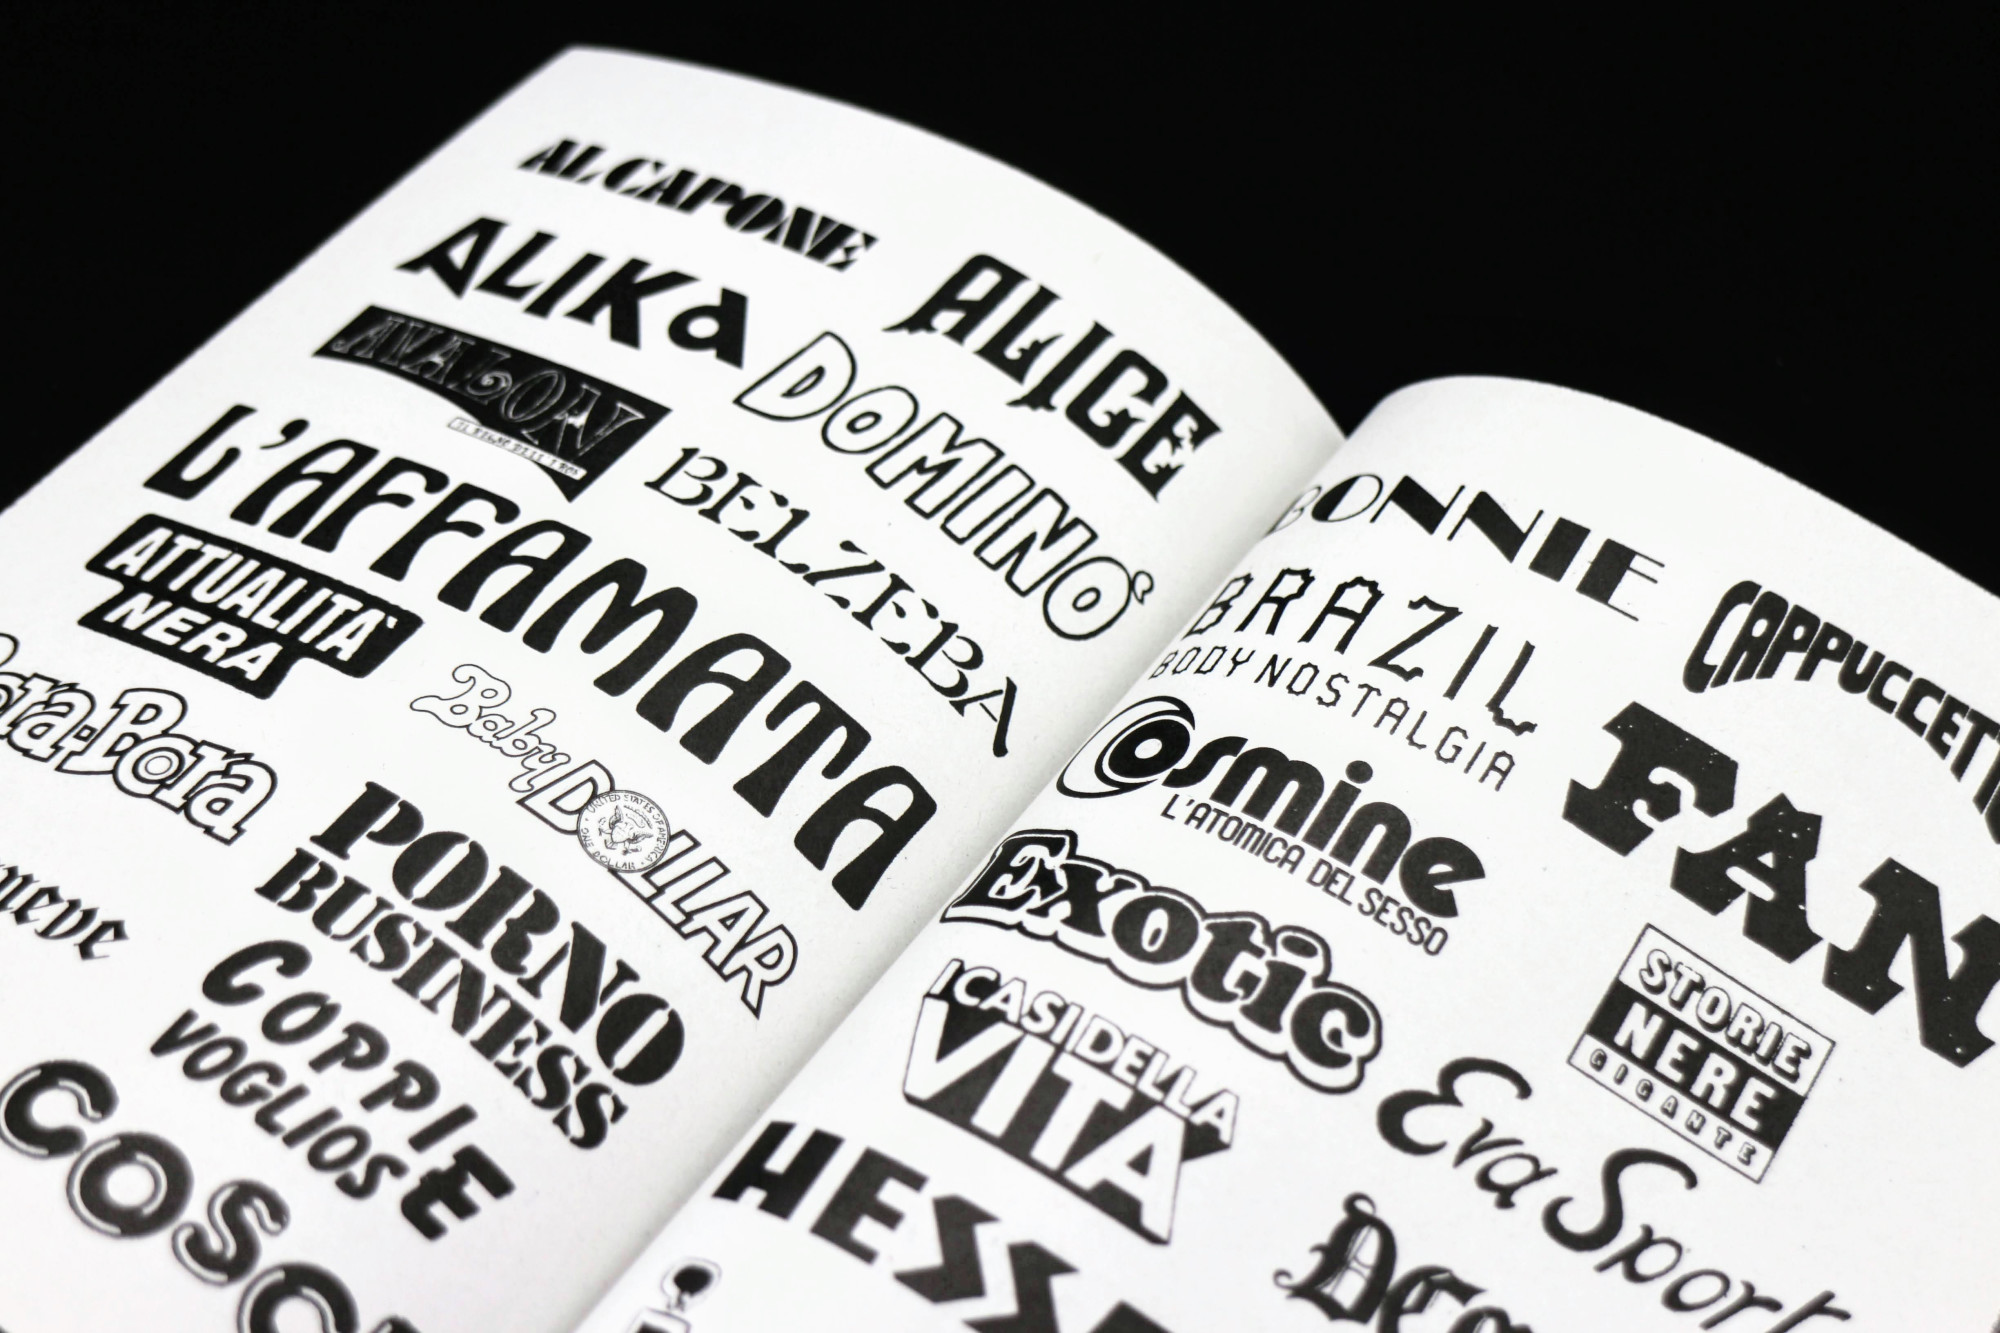 ALCAPONE
ALIKA
ALICE
AVALON
DOMINÒ
L'AFFAMATA
BELZEBA
ATTUALITA'
NERA
Bora-Bora
Baby DOLLAR
UNITED STATES OF AMERICA
ONE DOLLAR
PORNO
BUSINESS
COPPIE
VOGLIOSE
BONNIE
BRAZIL
BODY NOSTALGIA
CAPPUCCETT
Cosmine
L'ATOMICA DEL SESSO
FAN
Exotic
I CASI DELLA
VITA
STORIE
NERE
GIGANTE
Eva Sport
HESS